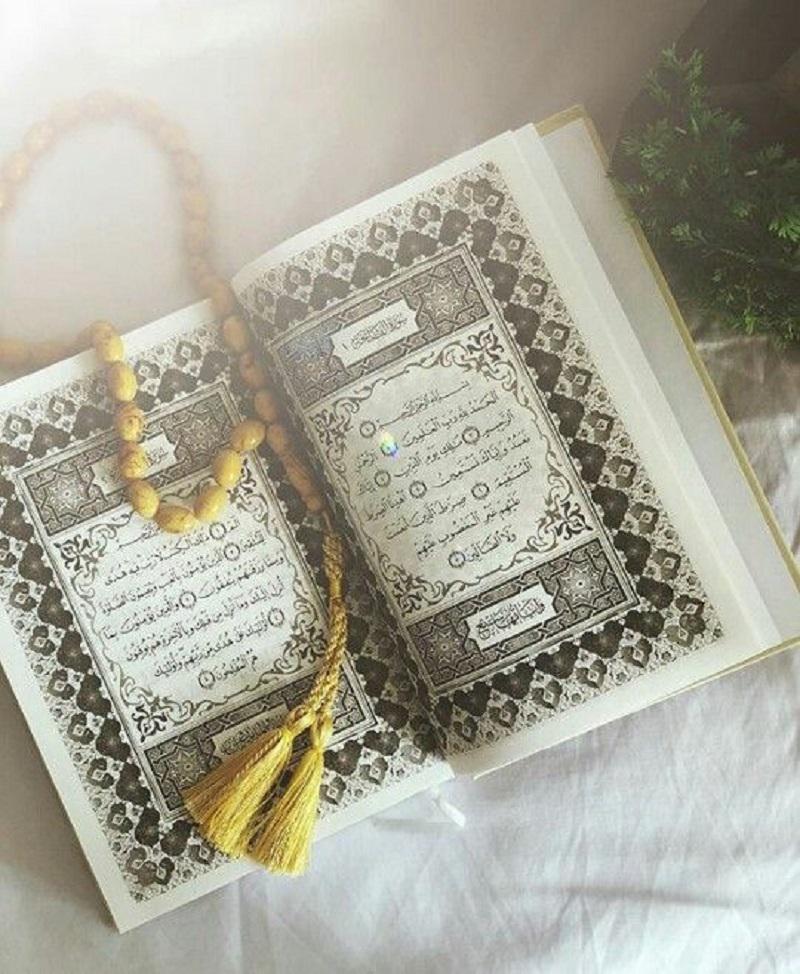 سورة الفاتحة ١
بسم الله الرحمن الرحيم ١
الحمد لله رب العلمين ٢ الرحمن
الرحيم ٣ ملك يوم الدين ٤ إياك
نعبد وإياك نستعين ٥ اهدنا الصرط
المستقيم ٦ صرط الذين أنعمت
عليهم غير المغضوب عليهم
ولا الضالين ٧
سورة
الم ١ ذلك الكتب لا ريب فيه هدى
للمتقين ٢ الذين يؤمنون بالغيب ويقيمون الصلوة
ومما رزقنهم ينفقون ٣ والذين يؤمنون بما
أنزل إليك وما أنزل من قبلك وبالأخرة هم يوقنون ٤
أولئك على هدى من ربهم وأولئك
هم المفلحون ٥